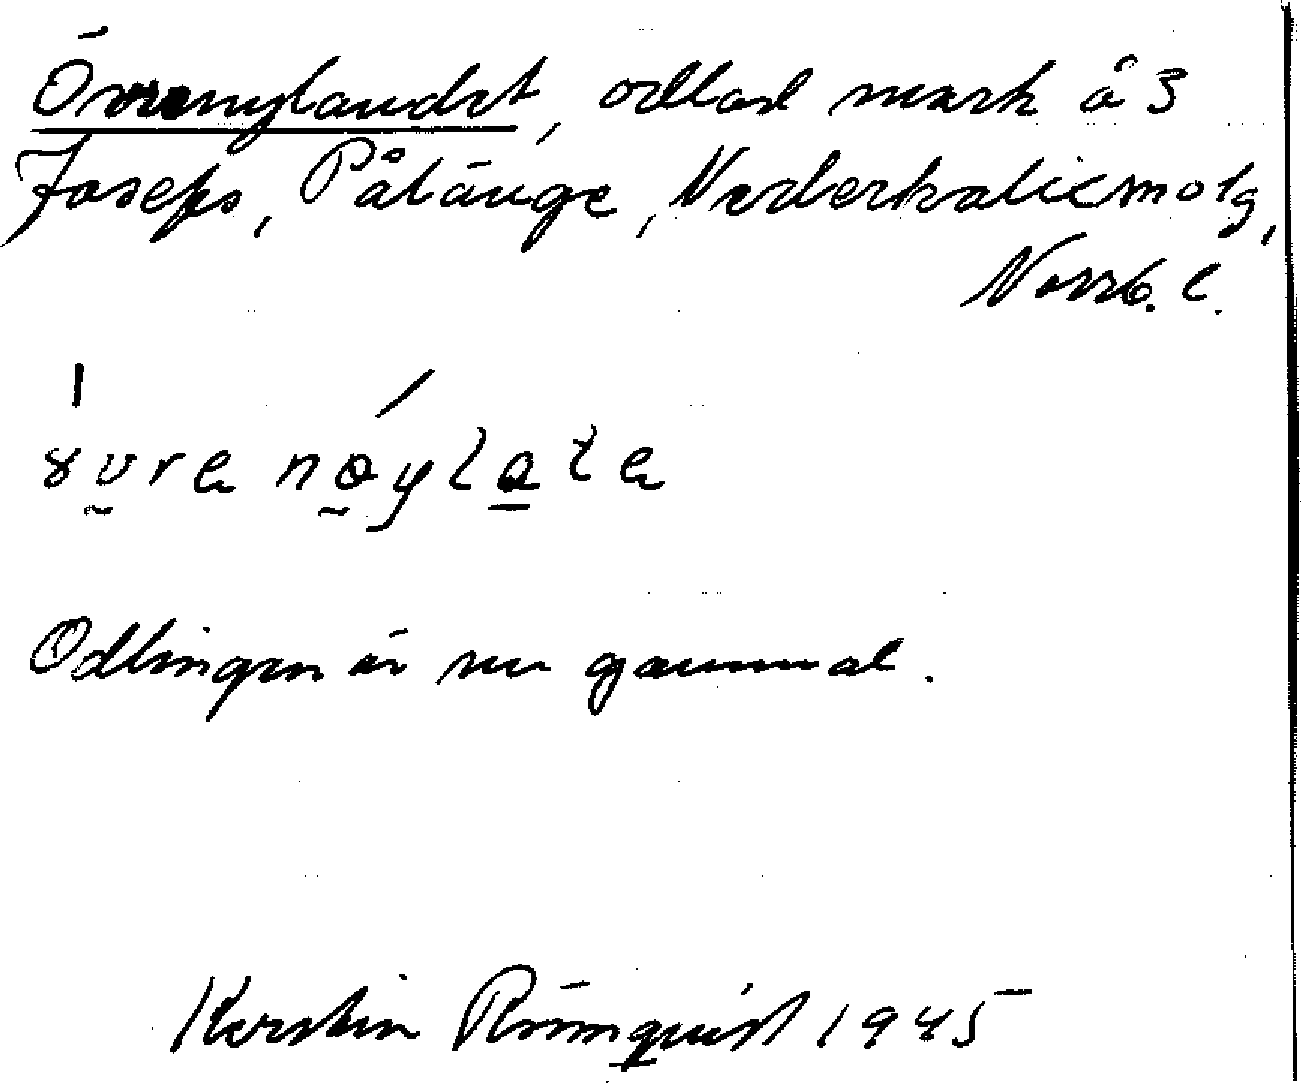 Övrenylandet, odlad mark å 3
Josefs, Pålänge, Nederkalix sn o tg,
Norrb. l.
Odlingen är nu gammal.
Kerstin Rönnquist 1945